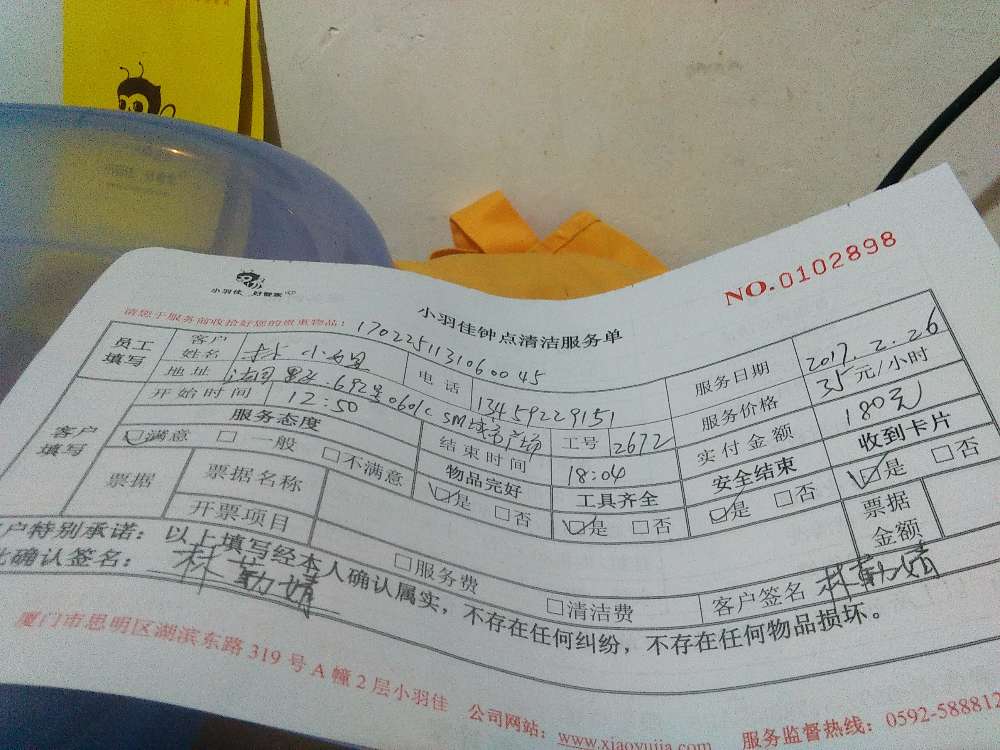 小羽佳 好管家
NO.0102898
小羽佳钟点清洁服务单
请您于服务前收拾好您的贵重物品!
1702251131060045
员工填写 客户姓名 林小姐 电话 13459229151 服务日期 2017.2.26
地址 692号0601c SM城市广场 工号 2672 服务价格 35元/小时
开始时间 12:50 结束时间 18:04 实付金额 180元
客户填写 服务态度 物品完好 工具齐全 安全结束 收到卡片
☑满意 □一般 □不满意 ☑是 □否 ☑是 □否 ☑是 □否 ☑是 □否
票据 票据名称 票据金额
开票项目 □服务费 □清洁费 客户签名 林勤婧
户特别承诺：以上填写经本人确认属实，不存在任何纠纷，不存在任何物品损坏。
确认签名： 林勤婧
厦门市思明区湖滨东路319号A幢2层小羽佳 公司网站：www.xiaoyujia.com 服务监督热线：0592-588812